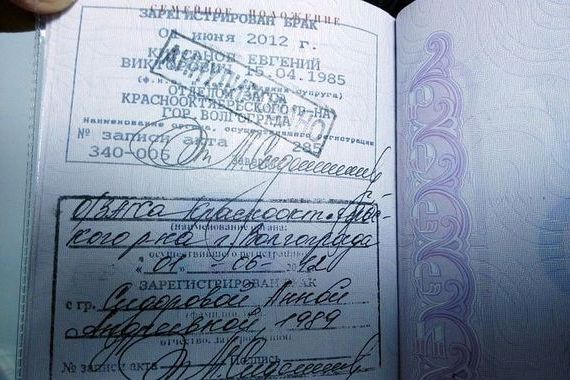 СЕМЕЙНОЕ ПОЛОЖЕНИЕ
ЗАРЕГИСТРИРОВАН БРАК
01 июня 2012 г.
ЕВГЕНИЙ
15.04.1985
ОТДЕЛОМ
КРАСНООКТЯБРЬСКОГО Р-НА
ГОР. ВОЛГОГРАДА
Наименование органа, осуществившего регистрацию
№ записи акта 285
340-006
ОЗАГСа Краснооктябрьс-
кого р-на г. Волгограда
(наименование органа,
осуществившего регистрацию)
"01" 06 2012
ЗАРЕГИСТРИРОВАН БРАК
с гр. Сидоровой Анной
Андреевной, 1989
отчество, дата рождения)
№ записи акта Подпись